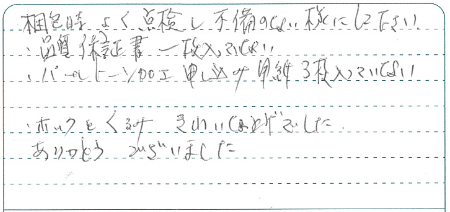 梱包時よく点検し不備のない様にして下さい
・品質保証書一枚入っていない
・パールトーン加工申込み用紙3枚入っていない
・ホックもくるみ きれいな
ありがとう ございました